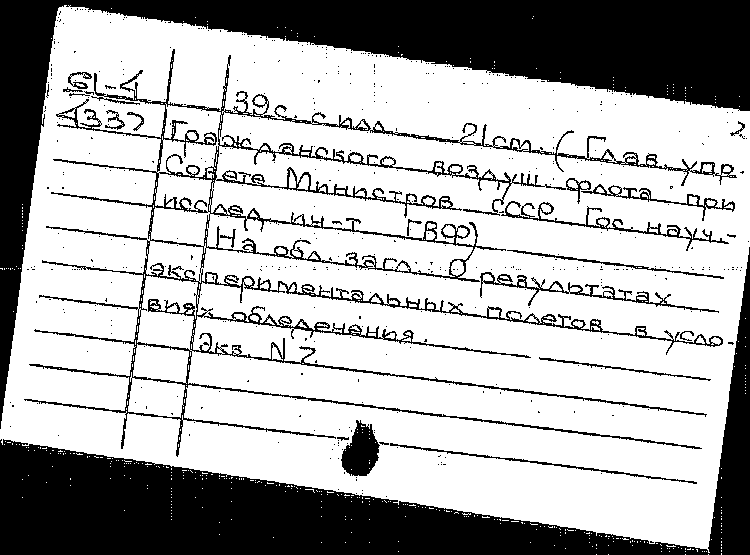 2
61-4
4337
39 с. с илл. 21 cm. (Глав. упр.
Гражданского воздуш. флота при
Совете Министров СССР. Гос. науч.-
исслед. ин-т ГВФ)
На обл. загл.: О результатах
экспериментальных полетов в усло-
виях обледенения.
Экз. N 2